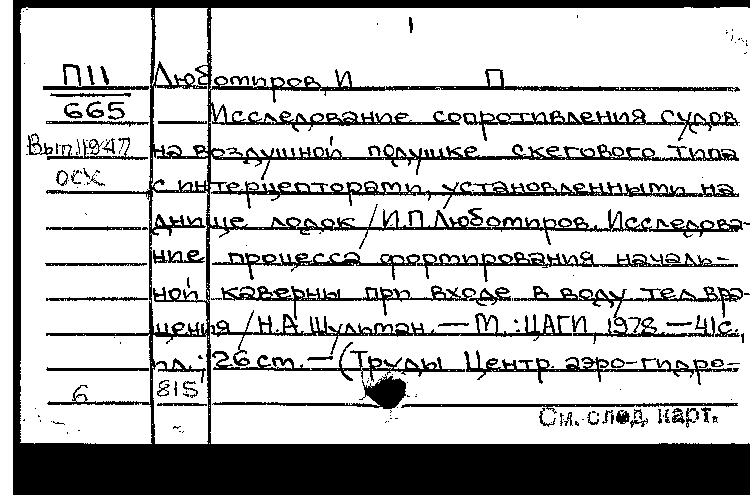 П11 Люботиров, И П
665 Исследование сопротивления судов
Вып.1947 на воздушной подушке скегового типа
осх с интерцепторами, установленными на
днище лодок / И.П.Люботиров. Исследова-
ние процесса формирования началь-
ной каверны при входе в воду тел вра-
щения / Н.А.Шульман. — М.: ЦАГИ, 1978. — 41с.,
ил.; 26 ст. — (Труды Центр. аэро-гидро-
6 815
См. след. карт.